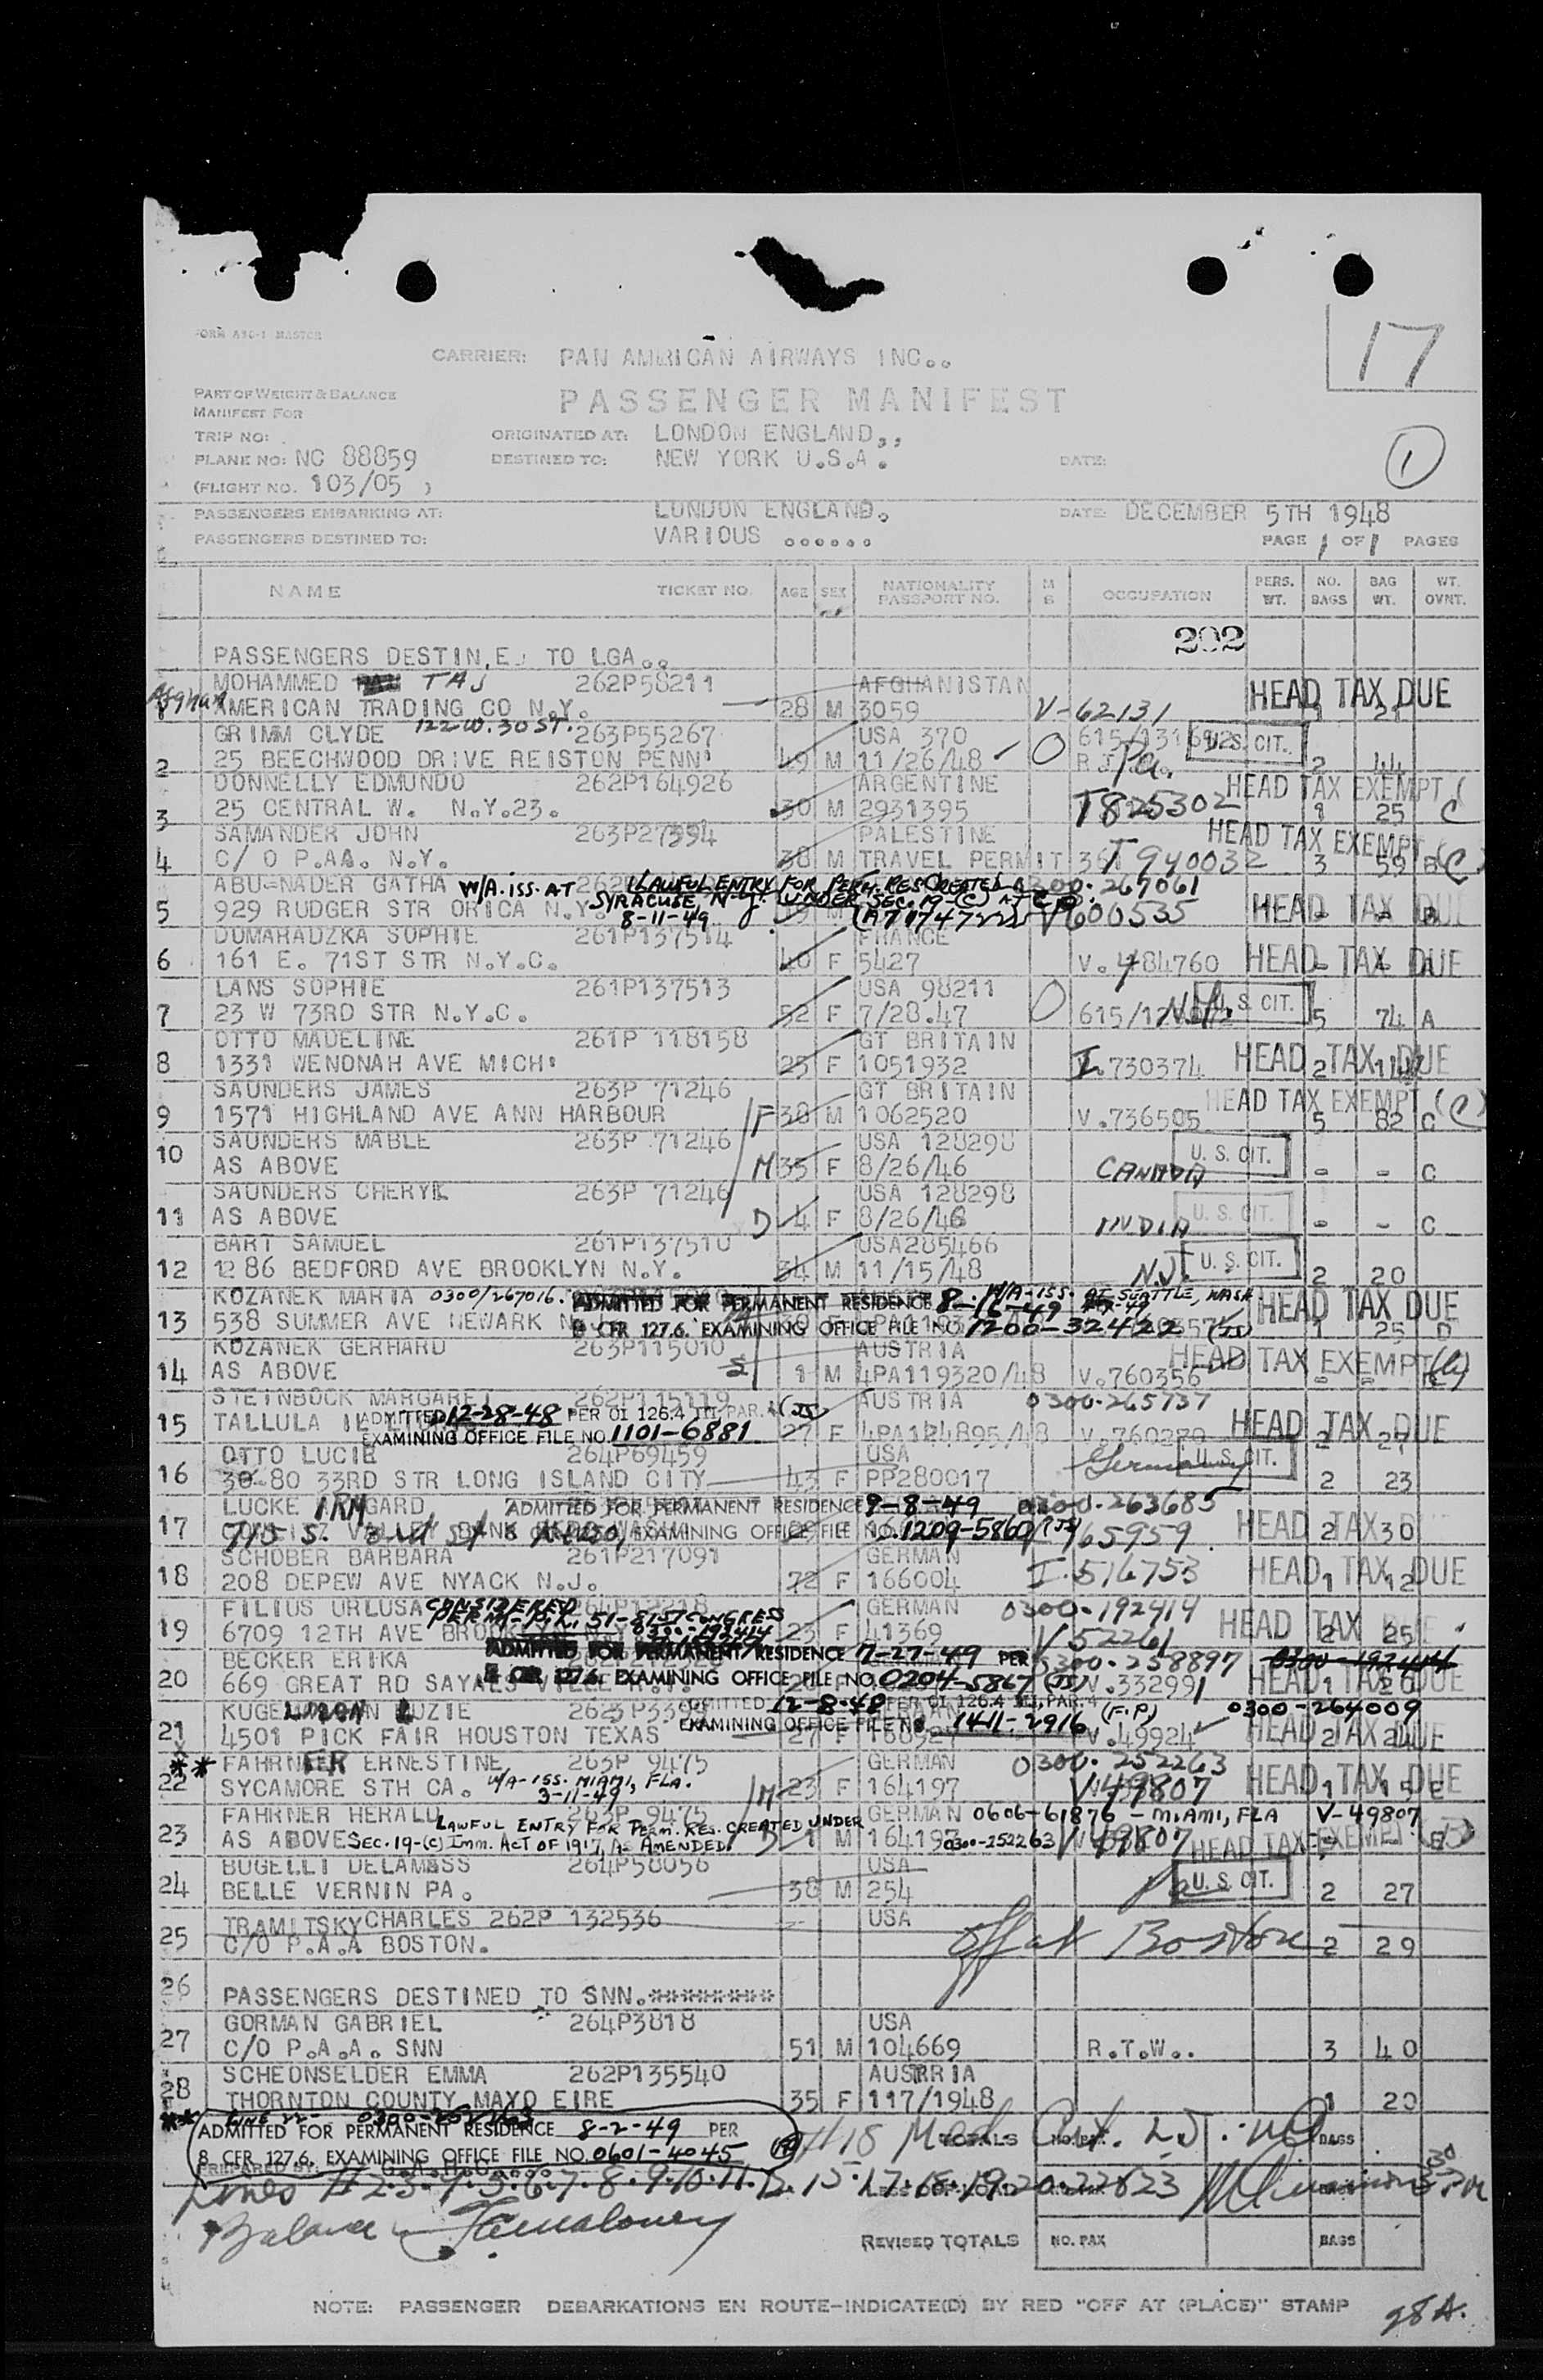 17
FORM A80-1 MASTER
CARRIER: PAN AMERICAN AIRWAYS INC..
PART OF WEIGHT & BALANCE
MANIFEST FOR
PASSENGER MANIFEST
TRIP NO:
ORIGINATED AT: LONDON ENGLAND,,
PLANE NO: NC 88859
DESTINED TO: NEW YORK U.S.A. DATE: 1
(FLIGHT NO. 103/05 )
PASSENGERS EMBARKING AT: LONDON ENGLAND. DATE: DECEMBER 5TH 1948
PASSENGERS DESTINED TO: VARIOUS ...... PAGE 1 OF 1 PAGES
NAME TICKET NO. AGE SEX NATIONALITY PASSPORT NO. M S OCCUPATION PERS. WT. NO. BAGS BAG WT. WT. OVNT.
202
PASSENGERS DESTIN,E. TO LGA..
MOHAMMED TAJ 262P58211 AFGHANISTAN HEAD TAX DUE
Afghan AMERICAN TRADING CO N.Y. 28 M 3059 V-62131
122 W. 30 ST.
GRIMM CLYDE 263P55267 USA 370 U.S. CIT.
2 25 BEECHWOOD DRIVE REISTON PENN 49 M 11/26/48 Pa. 2 44
DONNELLY EDMUNDO 262P164926 ARGENTINE HEAD TAX EXEMPT
3 25 CENTRAL W. N.Y.23. 30 M 2931395 T825302 1 25 C
SAMANDER JOHN 263P27394 PALESTINE HEAD TAX EXEMPT (C)
4 C/O P.AA. N.Y. 38 M TRAVEL PERMIT T940032 3 59
ABU-NADER GATHA W/A. ISS. AT LAWFUL ENTRY FOR PERM. RES. CREATED 267061
5 929 RUDGER STR ORICA N.Y. SYRACUSE, N.Y. UNDER SEC. 19-(C) V600535 HEAD TAX DUE
8-11-49
DOMARADZKA SOPHIE 261P137514 FRANCE
6 161 E. 71ST STR N.Y.C. 40 F 5427 V.484760 HEAD TAX DUE
LANS SOPHIE 261P137513 USA 98211 U.S. CIT.
7 23 W 73RD STR N.Y.C. 52 F 7/28.47 N.Y. 5 74 A
OTTO MADELINE 261P 118158 GT BRITAIN
8 1331 WENONAH AVE MICH 25 F 1051932 I.730374 HEAD TAX DUE
SAUNDERS JAMES 263P 71246 GT BRITAIN HEAD TAX EXEMPT (C)
9 1571 HIGHLAND AVE ANN HARBOUR F 38 M 1062520 V.736505 5 82 C
SAUNDERS MABLE 263P 71246 USA 128298 U. S. CIT.
10 AS ABOVE M 35 F 8/26/46 CANADA - - C
SAUNDERS CHERYL 263P 71246 USA 128298 U. S. CIT.
11 AS ABOVE D 4 F 8/26/46 INDIA - - C
BART SAMUEL 261P137510 USA285466 U. S. CIT.
12 1286 BEDFORD AVE BROOKLYN N.Y. 34 M 11/15/48 N.J. 2 20
KOZANEK MARIA 0300/267016. ADMITTED FOR PERMANENT RESIDENCE 8-16-49 W/A-ISS. AT SEATTLE, WASH HEAD TAX DUE
13 538 SUMMER AVE NEWARK 8 CFR 127.6. EXAMINING OFFICE FILE NO. 1200-32422 (JS) 1 25 D
KOZANEK GERHARD 263P115010 AUSTRIA HEAD TAX EXEMPT
14 AS ABOVE S 1 M 4PA119320/48 V.760356
STEINBOCK MARGARET 262P115119 AUSTRIA 0300-265737
15 TALLULA ADMITTED 12-28-48 PER OI 126.4 III PAR. 4 (JS) 27 F 4PA124895/48 V.760280 HEAD TAX DUE
EXAMINING OFFICE FILE NO. 1101-6881
OTTO LUCIE 264P69459 USA Germany U. S. CIT.
16 30-80 33RD STR LONG ISLAND CITY 43 F PP280017 2 23
LUCKE IRMGARD ADMITTED FOR PERMANENT RESIDENCE 9-8-49 0300-263685
17 715 S. 2nd St EXAMINING OFFICE FILE NO. 1209-5860 (JS) 765959 HEAD TAX
SCHOBER BARBARA 261P217091 GERMAN
18 208 DEPEW AVE NYACK N.J. 72 F 166004 I.516753 HEAD TAX DUE
FILIUS URLUSA CONSIDERED 264P12218 GERMAN 0300-192414
PERM-P.L. 51-81ST CONGRESS
0300-192414
19 6709 12TH AVE BROOKLYN 23 F 41369 V52261 HEAD TAX 2 25
BECKER ERIKA ADMITTED FOR PERMANENT RESIDENCE 7-27-49 PER 0300-258897 0300-192414
20 669 GREAT RD 8 CFR 127.6. EXAMINING OFFICE FILE NO. 0204-5867 (JS) V.332991 HEAD TAX DUE
KUGELMANN LUZIE ADMITTED 12-8-48 PER OI 126.4 III, PAR. 4 (F.P) 0300-264009
21 4501 PICK FAIR HOUSTON TEXAS EXAMINING OFFICE FILE NO. 1411-2916 27 F V.49924 HEAD TAX DUE
** FAHRNER ERNESTINE 263P 9475 GERMAN 0300-252263
22 SYCAMORE STH CA. W/A-ISS. MIAMI, FLA. 3-11-49 M 23 F 164197 V49807 HEAD TAX DUE
FAHRNER HERALD 263P 9475 GERMAN 0606-61876 - MIAMI, FLA V-49807
LAWFUL ENTRY FOR PERM. RES. CREATED UNDER
23 AS ABOVE SEC. 19-(C) IMM. ACT OF 1917, AS AMENDED. 1 M 164197 0300-252263 V49807 HEAD TAX EXEMPT
BUGELLI DELAMASS 264P58056 USA U. S. CIT.
24 BELLE VERNIN PA. 38 M 254 Pa 2 27
TRAMITSKY CHARLES 262P 132536 USA
25 C/O P.A.A BOSTON. off at Boston 2 29
26 PASSENGERS DESTINED TO SNN.*********
GORMAN GABRIEL 264P3818 USA
27 C/O P.A.A. SNN 51 M 104669 R.T.W.. 3 40
SCHEONSELDER EMMA 262P135540 AUSRRIA
28 THORNTON COUNTY MAYO EIRE 35 F 117/1948 1 20
** LINE 22- 0300-252263
ADMITTED FOR PERMANENT RESIDENCE 8-2-49 PER
8 CFR 127.6. EXAMINING OFFICE FILE NO. 0601-4045
TOTALS BAGS
PREPARED BY:
Lines # 2.3.4.5.6.7.8.9.10.11.12.15.17.18.19.20.22&23
Balance
REVISED TOTALS NO. PAX BAGS
NOTE: PASSENGER DEBARKATIONS EN ROUTE-INDICATE(D) BY RED "OFF AT (PLACE)" STAMP
28A.